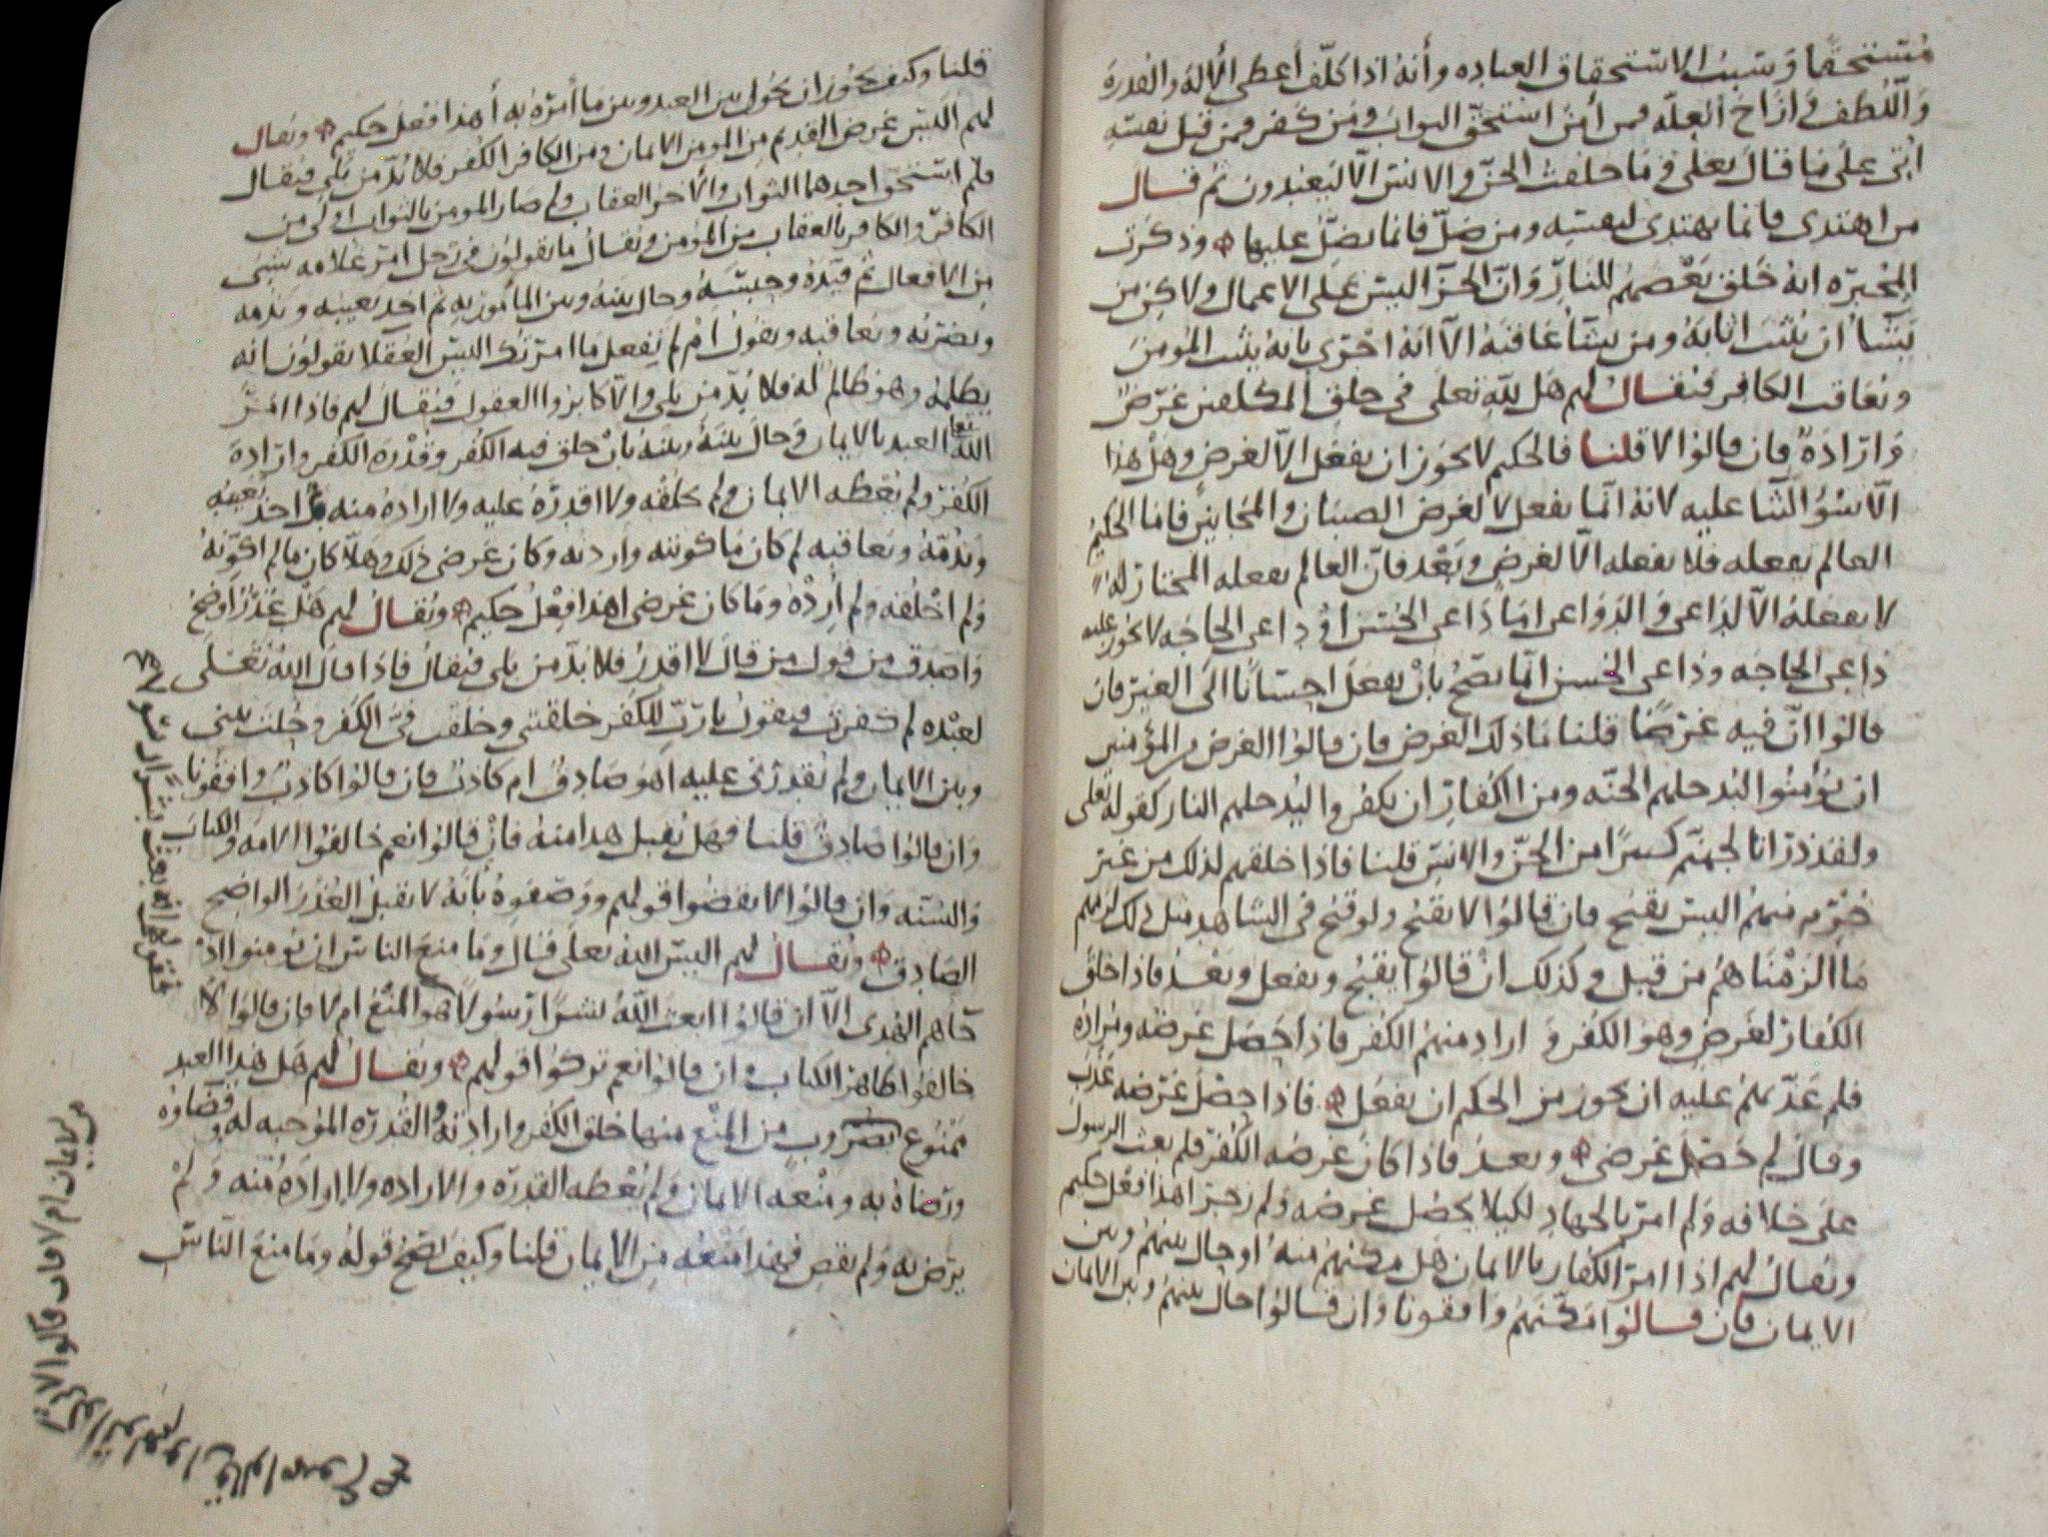 مستحقا وسبب الاستحقاق العباده وأنه اذا كلف أعطى الآلة والقدرة
واللطف وازاح العلة فمن أمن استحق الثواب ومن كفر فمن قبل نفسه
أتى على ما قال تعلى وما خلقت الجن والانس الا ليعبدون ثم قال
من اهتدى فانما يهتدى لنفسه ومن ضل فانما يضل عليها وذكرت
المجبره انه خلق بعضهم للنار وان الجزآ ليس على الاعمال ولاكن من
يشأ ان يثيب اثابه ومن يشأ عاقبه الا انه اخبرى بانه يثيب المومن
ويعاقب الكافر فيقال لهم هل لله تعلى في خلق المكلفين غرض
وارادة فان قالوا لا قلنا فالحكيم لا يجوز ان يفعل الا لغرض وهل هذا
الا سوُ الثنا عليه لانه انما يفعل لا لغرض الصبيان والمجانين فاما الحكيم
العالم بفعله فلا يفعله الا لغرض وبعد فان العالم بفعله المختار له
لا يفعله الا لداعى والدواعى اما داعى الحسن او داعى الحاجه لا يجوز عليه
داعى الحاجه وداعى الحسن انما يصح بان يفعل احسانا الى الغير فان
قالوا ان فيه غرضا قلنا ما ذلك الغرض فان قالوا الغرض من المؤمنين
ان يؤمنوا ليدخلهم الجنه ومن الكفار ان يكفروا ليدخلهم النار كقوله تعلى
ولقد ذرانا لجهنم كثيرا من الجن والانس قلنا فاذا خلقهم لذلك من غير
جرم منهم اليس يقبح فان قالوا لا يقبح ولو قبح في الشاهد مثل ذلك لزمهم
ما الزمناهم من قبل وكذلك ان قالوا يقبح ويفعل وبعد فاذا خلق
الكفار لغرض وهو الكفر و اراد منهم الكفر فاذا حصل غرضه ومراده
فلم عذبهم عليه ان يجوز من الحكيم ان يفعل فاذا حصل غرضه عذب
وقال لم حصل غرضى وبعد فاذا كان غرضه الكفر فلم بعث الرسول
على خلافه ولم امر بالجهاد لكيلا يحصل غرضه ولم زجر اهذا فعل حكيم
ويقال لهم اذا امر الكفار بالايمان هل مكنهم منه او حال بينهم وبين
الايمان فان قالوا مكنهم وافقونا وان قالوا حال بينهم وبين الايمان
قلنا وكيف يجوز ان يحول بين العبد وبين ما أمره به أهذا فعل حكيم ويقال
لهم اليس غرض القديم من المومن الايمان ومن الكافر الكفر فلا بد من بلى فيقال
فلم استحق احدهما الثواب والآخر العقاب ولم صار المومن بالثواب اولى من
الكافر والكافر بالعقاب من المؤمن ويقال ما تقولون في رجل امر غلامه بشى
من الافعال ثم قيده وحبسه وحال بينه وبين المأمور به ثم اخذ يعيبه ويذمه
ويضربه ويعاقبه ويقول لم لم تفعل ما امرتك اليس العقلا يقولون انه
يظلمه وهو ظالم له فلا بد من بلى والا كابروا العقول فيقال لهم فاذا امر
الله تعا العبد بالايمان وحال بينه وبينه بان خلق فيه الكفر وقدرة الكفر وارادة
الكفر ولم يعطه الايمان ولم يخلقه ولا اقدره عليه ولا اراده منه ثم اخذ يعيبه
ويذمه ويعاقبه لم كان ما كونته واردته وكان غرضى ذلك وهلا كان ما لم اكونه
ولم اخلقه ولم أرده وما كان غرضى اهذا فعل حكيم ويقال لهم هل عذر اوضح
واصدق من قول من قال لا اقدر فلا بد من بلى فيقال فاذا قال الله تعلى
لعبده لم كفرت فيقول يا رب للكفر خلقتنى وخلقت فى الكفر وحلت بينى
وبين الايمان ولم تقدرنى عليه اهو صادق ام كاذب فان قالوا كاذب وافقونا
وان قالوا صادق قلنا فهل يقبل هذا منه فان قالوا نعم خالفوا الامه والكتاب
والسنه وان قالوا لا نقضوا قولهم ووصفوه بانه لا يقبل العذر الواضح
الصادق ويقال لهم اليس الله تعلى قال وما منع الناس ان يومنوا اذ
جاهم الهدى الا ان قالوا ابعث الله بشرا رسولا اهو المنع ام لا فان قالوا لا
خالفوا ظاهر الكتاب وان قالوا نعم تركوا قولهم ويقال لهم هل هذا العبد
ممنوع بضروب من المنع منها خلق الكفر وارادته والقدره الموجبه له وقضاوه
ورضاه به ومنعه الايمان ولم يعطه القدره والاراده ولا اراده منه ولم
يرض به ولم يقض فهذا منعه من الايمان قلنا وكيف تصح قوله وما منع الناس
من الايمان ام لا فان قالوا لا